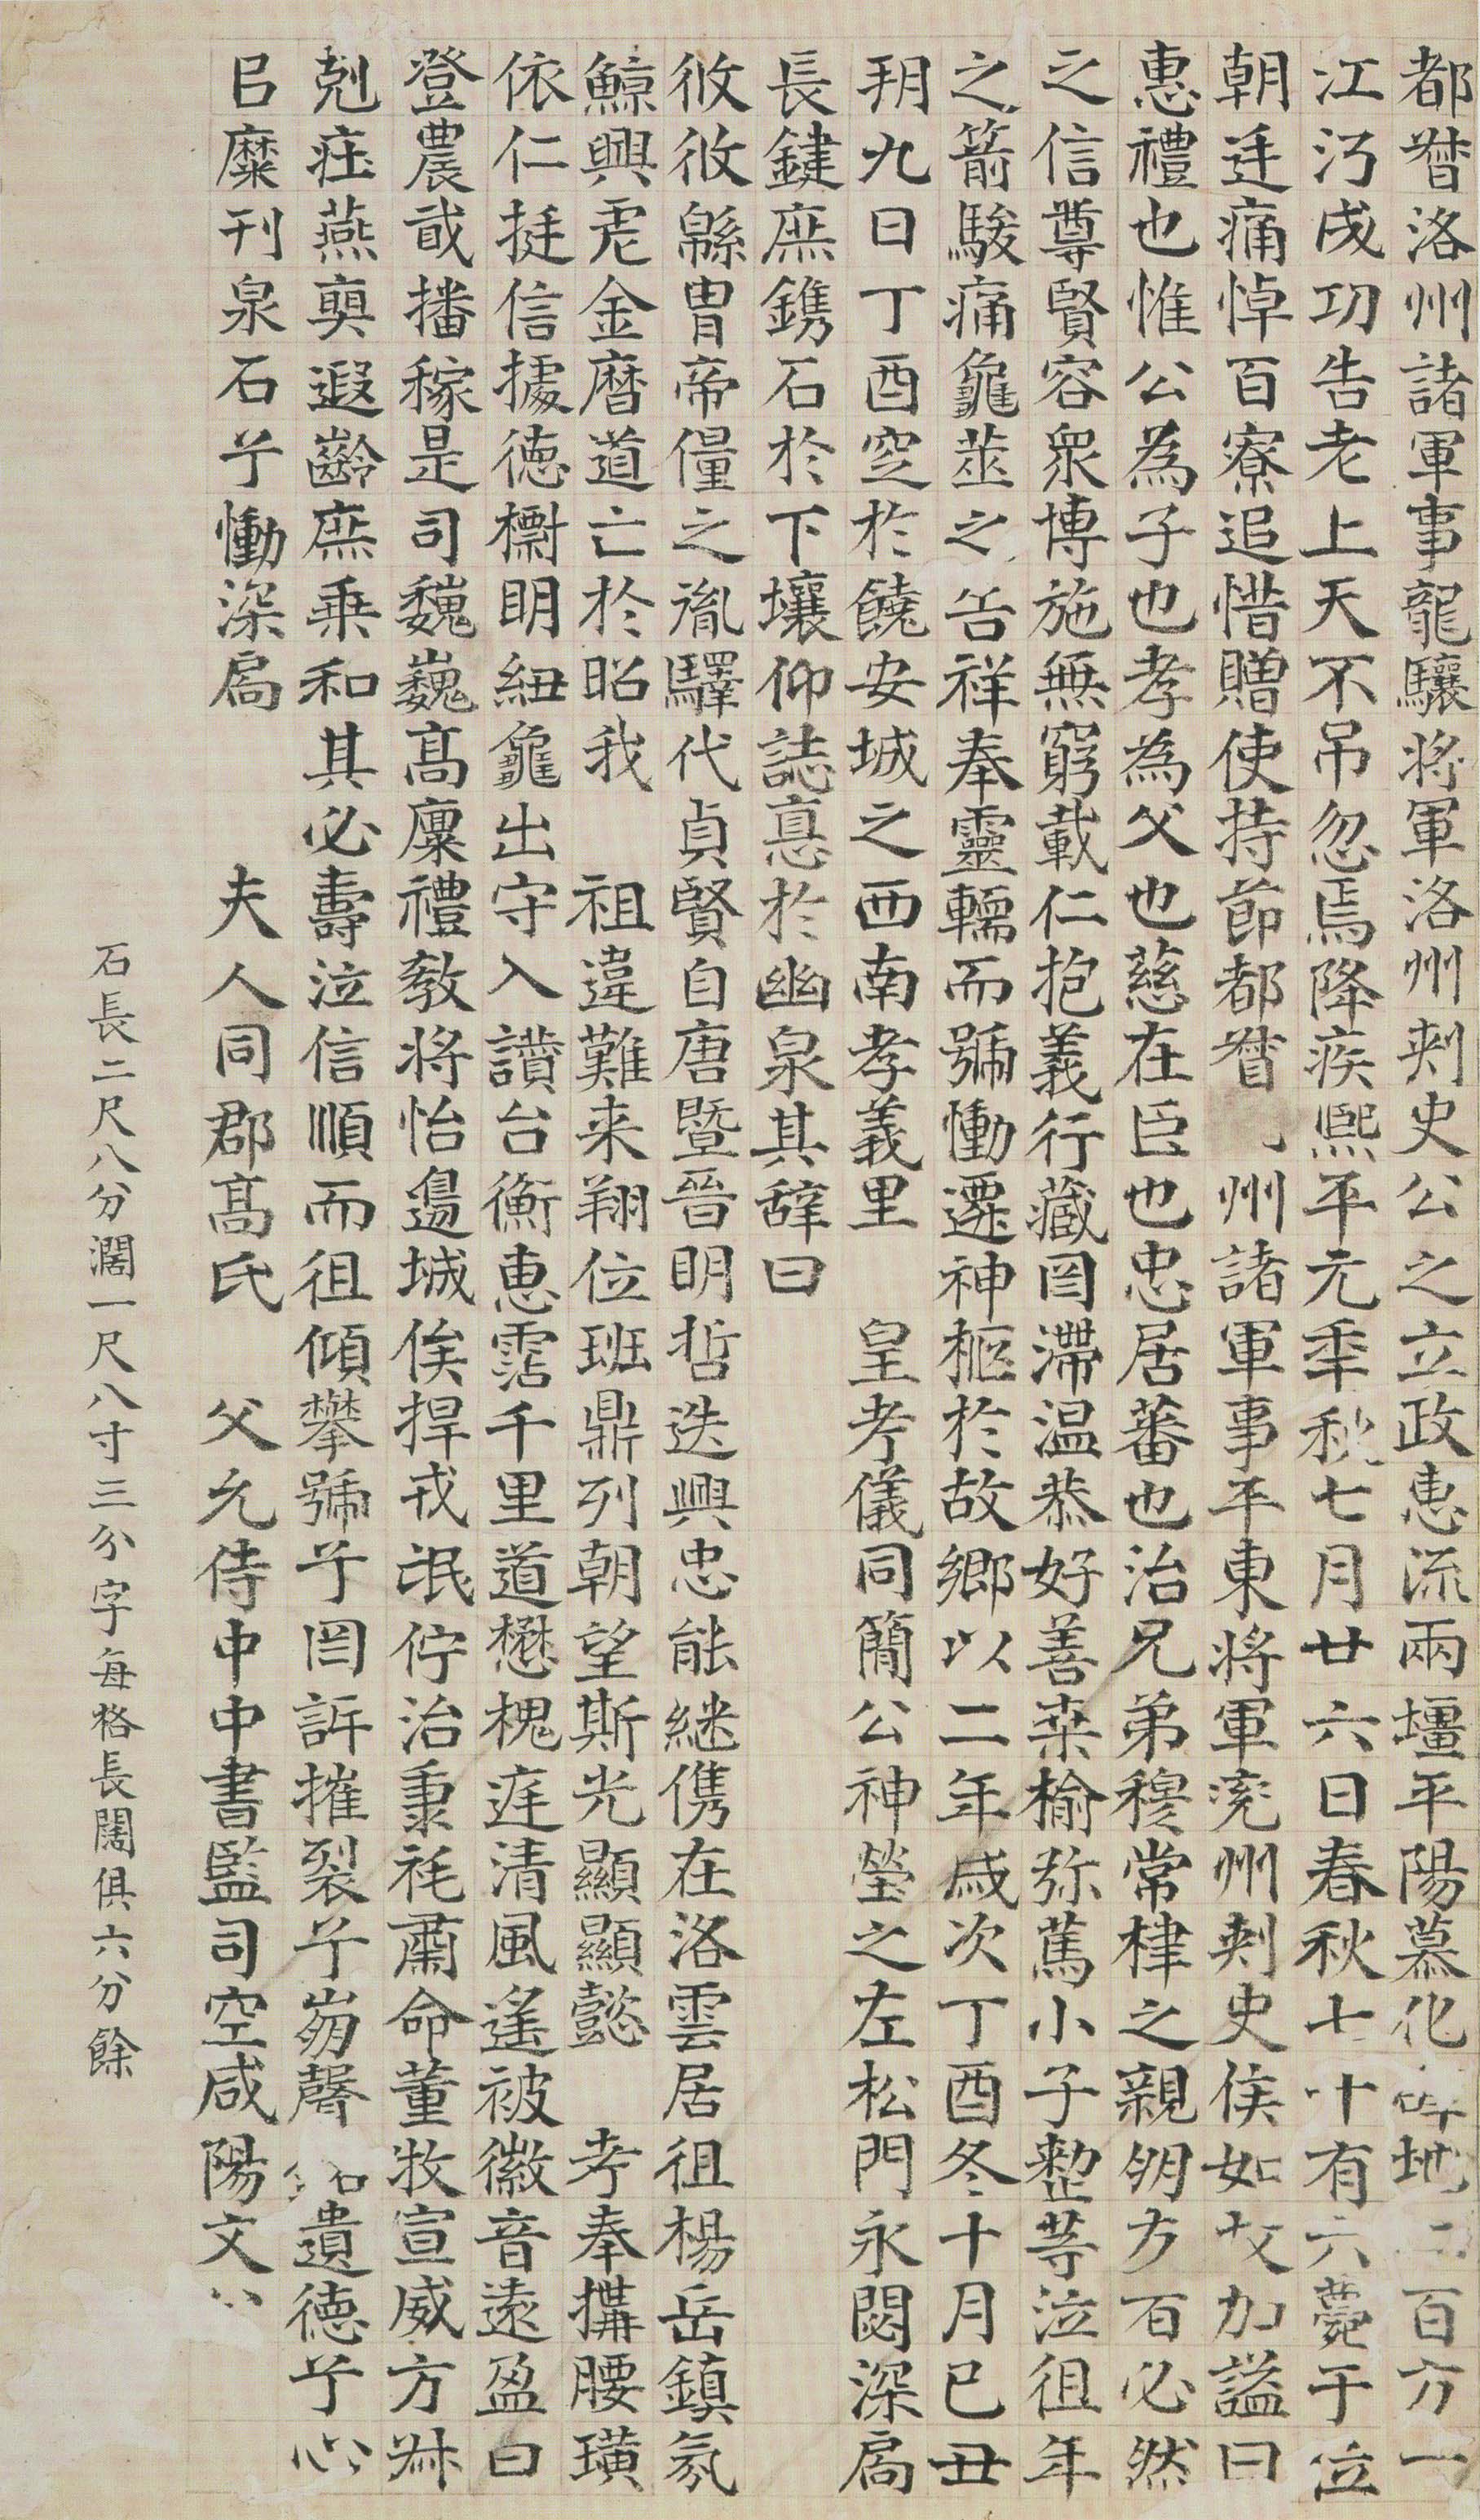 都督洛州諸軍事龍驤將軍洛州刾史公之立政惠流兩壃平陽慕化辟地二百方一
江沔成功告老上天不吊忽焉降疾熙平元秊秋七月廿六日春秋七十有六薨于位
朝迋痛悼百寮追惜贈使持節都督州諸軍事平東將軍兖州刾史侯如故加謚曰
惠禮也惟公為子也孝為父也慈在臣也忠居蕃也治兄弟穆常棣之親朋方百必然
之信尊賢容衆博施無窮載仁抱義行藏罔滯温恭好善桒榆弥萬小子整等泣徂年
之箭駿痛龜莁之告祥奉靈轜而號慟遷神柩於故鄉以二年歳次丁酉冬十月己丑
玥九日丁酉窆於饒安城之西南孝義里皇考儀同簡公神塋之左松門永閟深扃
長鍵庶鐫石於下壤仰誌悳於幽泉其辤曰
攸攸緜胄帝僮之胤驛代貞賢自唐暨晉明哲迭興忠能継儁在洛雲居徂楊岳鎮氛
鯨興虎金曆道亡於昭我祖違難来翔位班鼎列朝望斯光顯顯懿考奉搆腰璜
依仁挺信據德櫉明紐龜出守入讃台衡惠霑千里道懋槐庭清風遙被徽音遠盈曰
登農戓播稼是司魏巍高廩禮教將怡邊城俟捍戎氓佇治秉秏肅命董牧宣威方叔
剋荘燕奭遐齡庶乗和其必壽泣信順而徂傾攀號兮罔訴摧裂兮崩聲銘遺德兮心
㠯糜刊泉石兮慟深扃　夫人同郡髙氏　父允侍中中書監司空咸陽文公
石長二尺八分濶一尺八寸三分字每格長闊俱六分餘